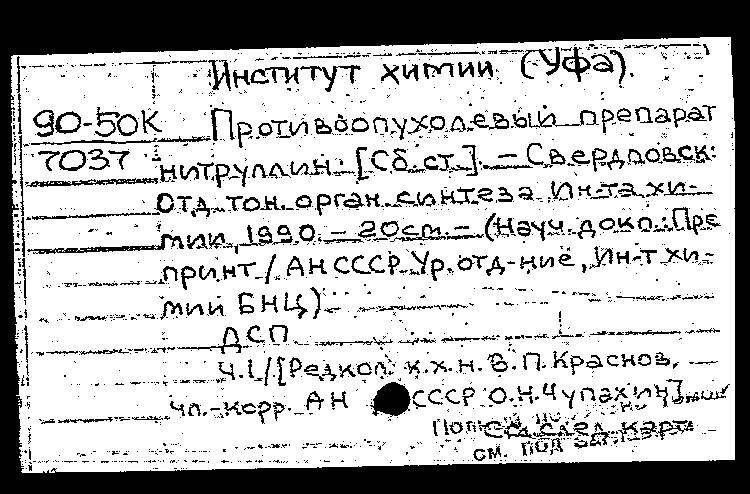 Институт химии (Уфа).
90-50К Противоопухолевый препарат
7037 нитруллин: [Сб. ст.]. – Свердловск:
Отд. тон. орган. синтеза Ин-та хи-
мии, 1990. – 20см. – (Науч. докл.: Пре
принт / АН СССР. Ур. отд-ние, Ин-т хи-
мии БНЦ).
ДСП
Ч.1 / [Редкол. к.х.н. В. П. Краснов,
чл.-корр. АН СССР О.Н. Чупахин]
См. след. карт.
см. под